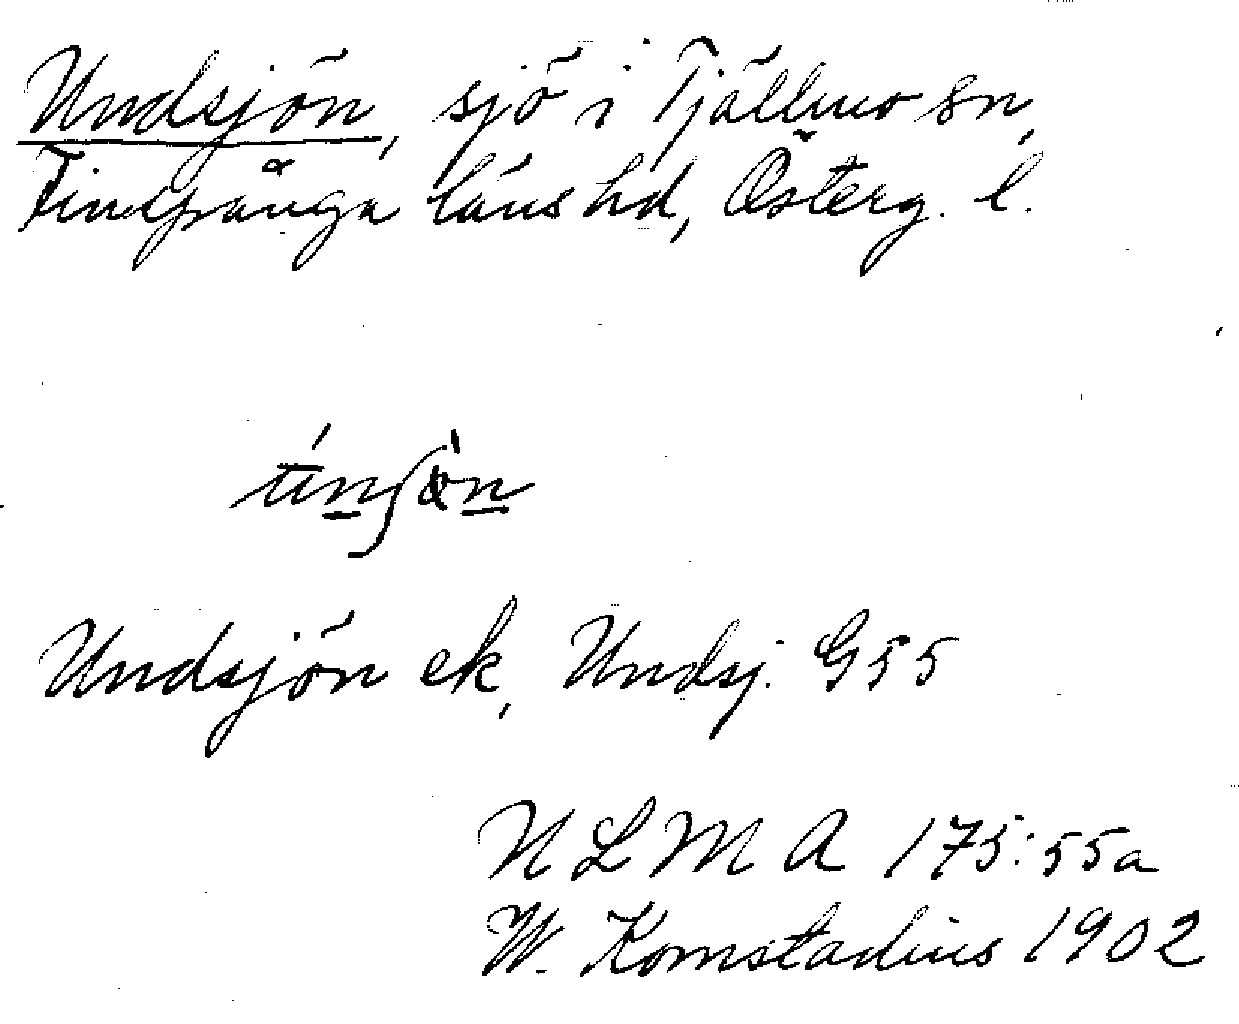 Undsjön, sjö i Tjällmo sn,
Finspånga läns hd, Österg. l.
Undsjön ek, Undsj. G55
NLM A 175:55a
W. Komstadius 1902